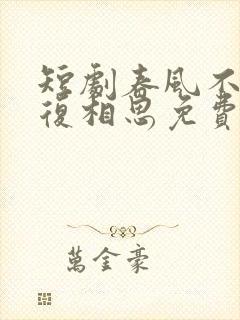 短劇春風不
復相思免費
萬金豪